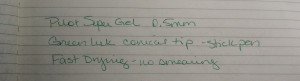 Pilot Super Gel 0.5mm
Green Ink conical tip - stick pen
Fast Drying - no smearing